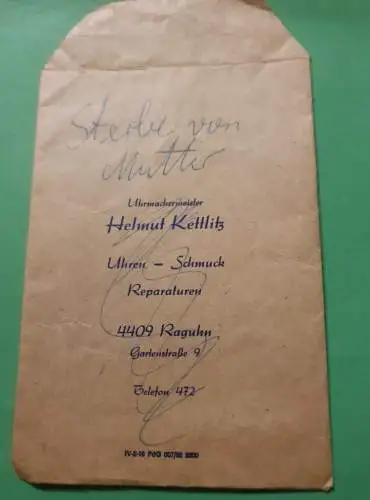 Sterbe von
Mutter
Uhrmachermeister
Helmut Kettlitz
Uhren – Schmuck
Reparaturen
4409 Raguhn
Gartenstraße 9
Telefon 472
IV-2-16 PdG 007/88 5000